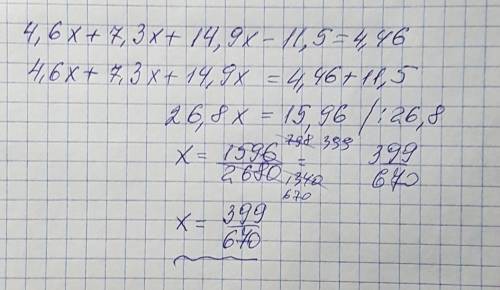 4,6x + 7,3x + 14,9x - 11,5 = 4,46
4,6x + 7,3x + 14,9x = 4,46 + 11,5
26,8x = 15,96 /:26,8
x = 1596/2680 798 399 1340 670 = 399/670
x = 399/670